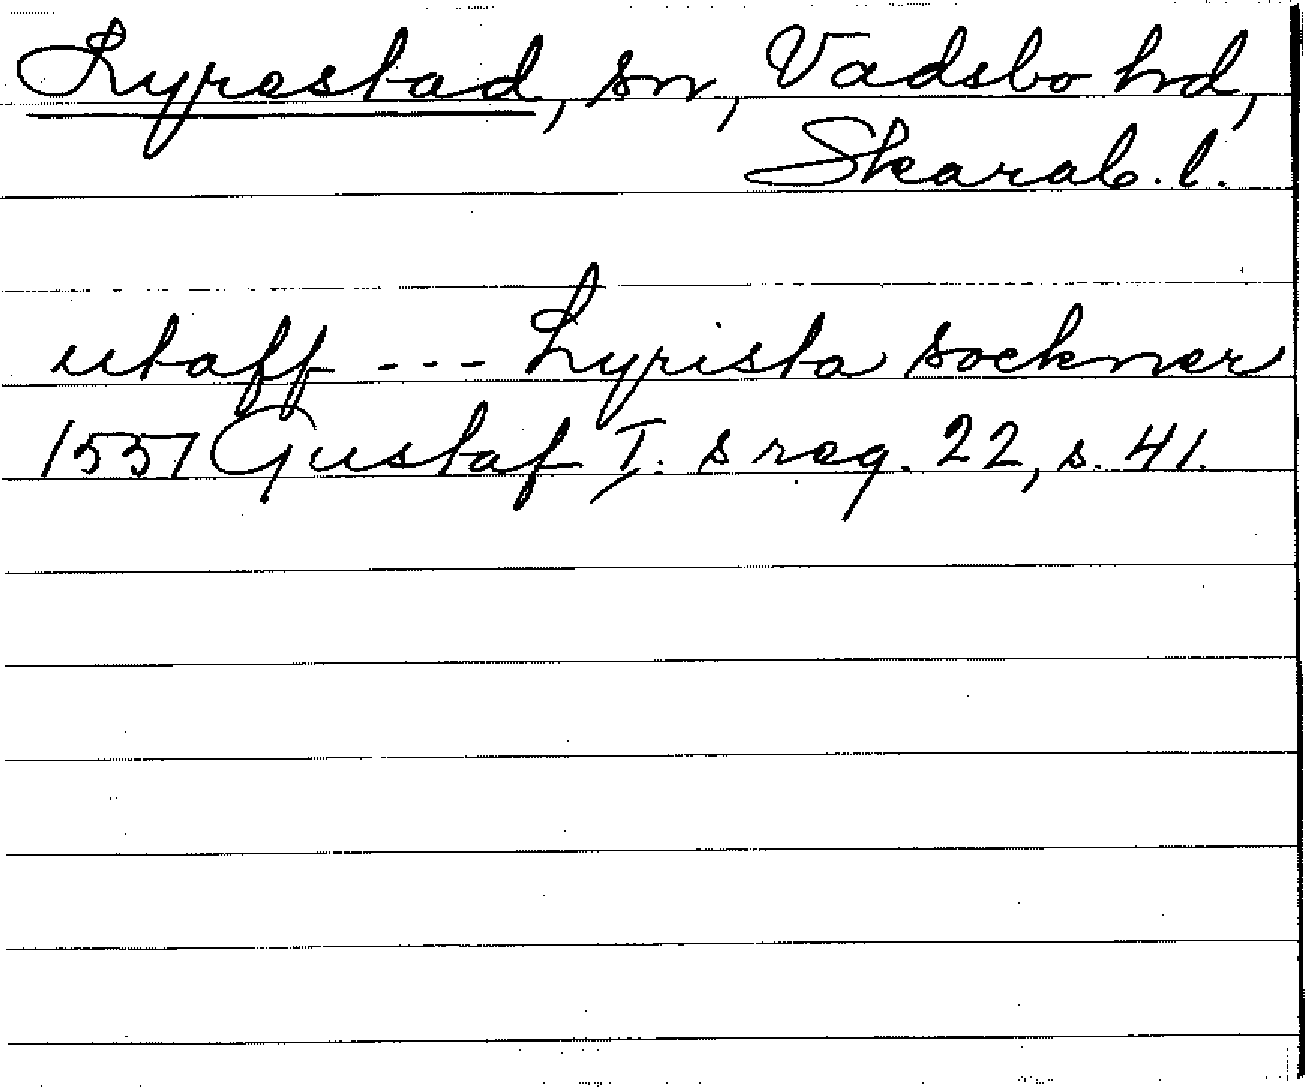 Lyrestad, sn, Vadsbo hd,
Skarab. l.
utaff --- Lyrista sockner
1551 Gustaf I:s reg. 22, s. 41.